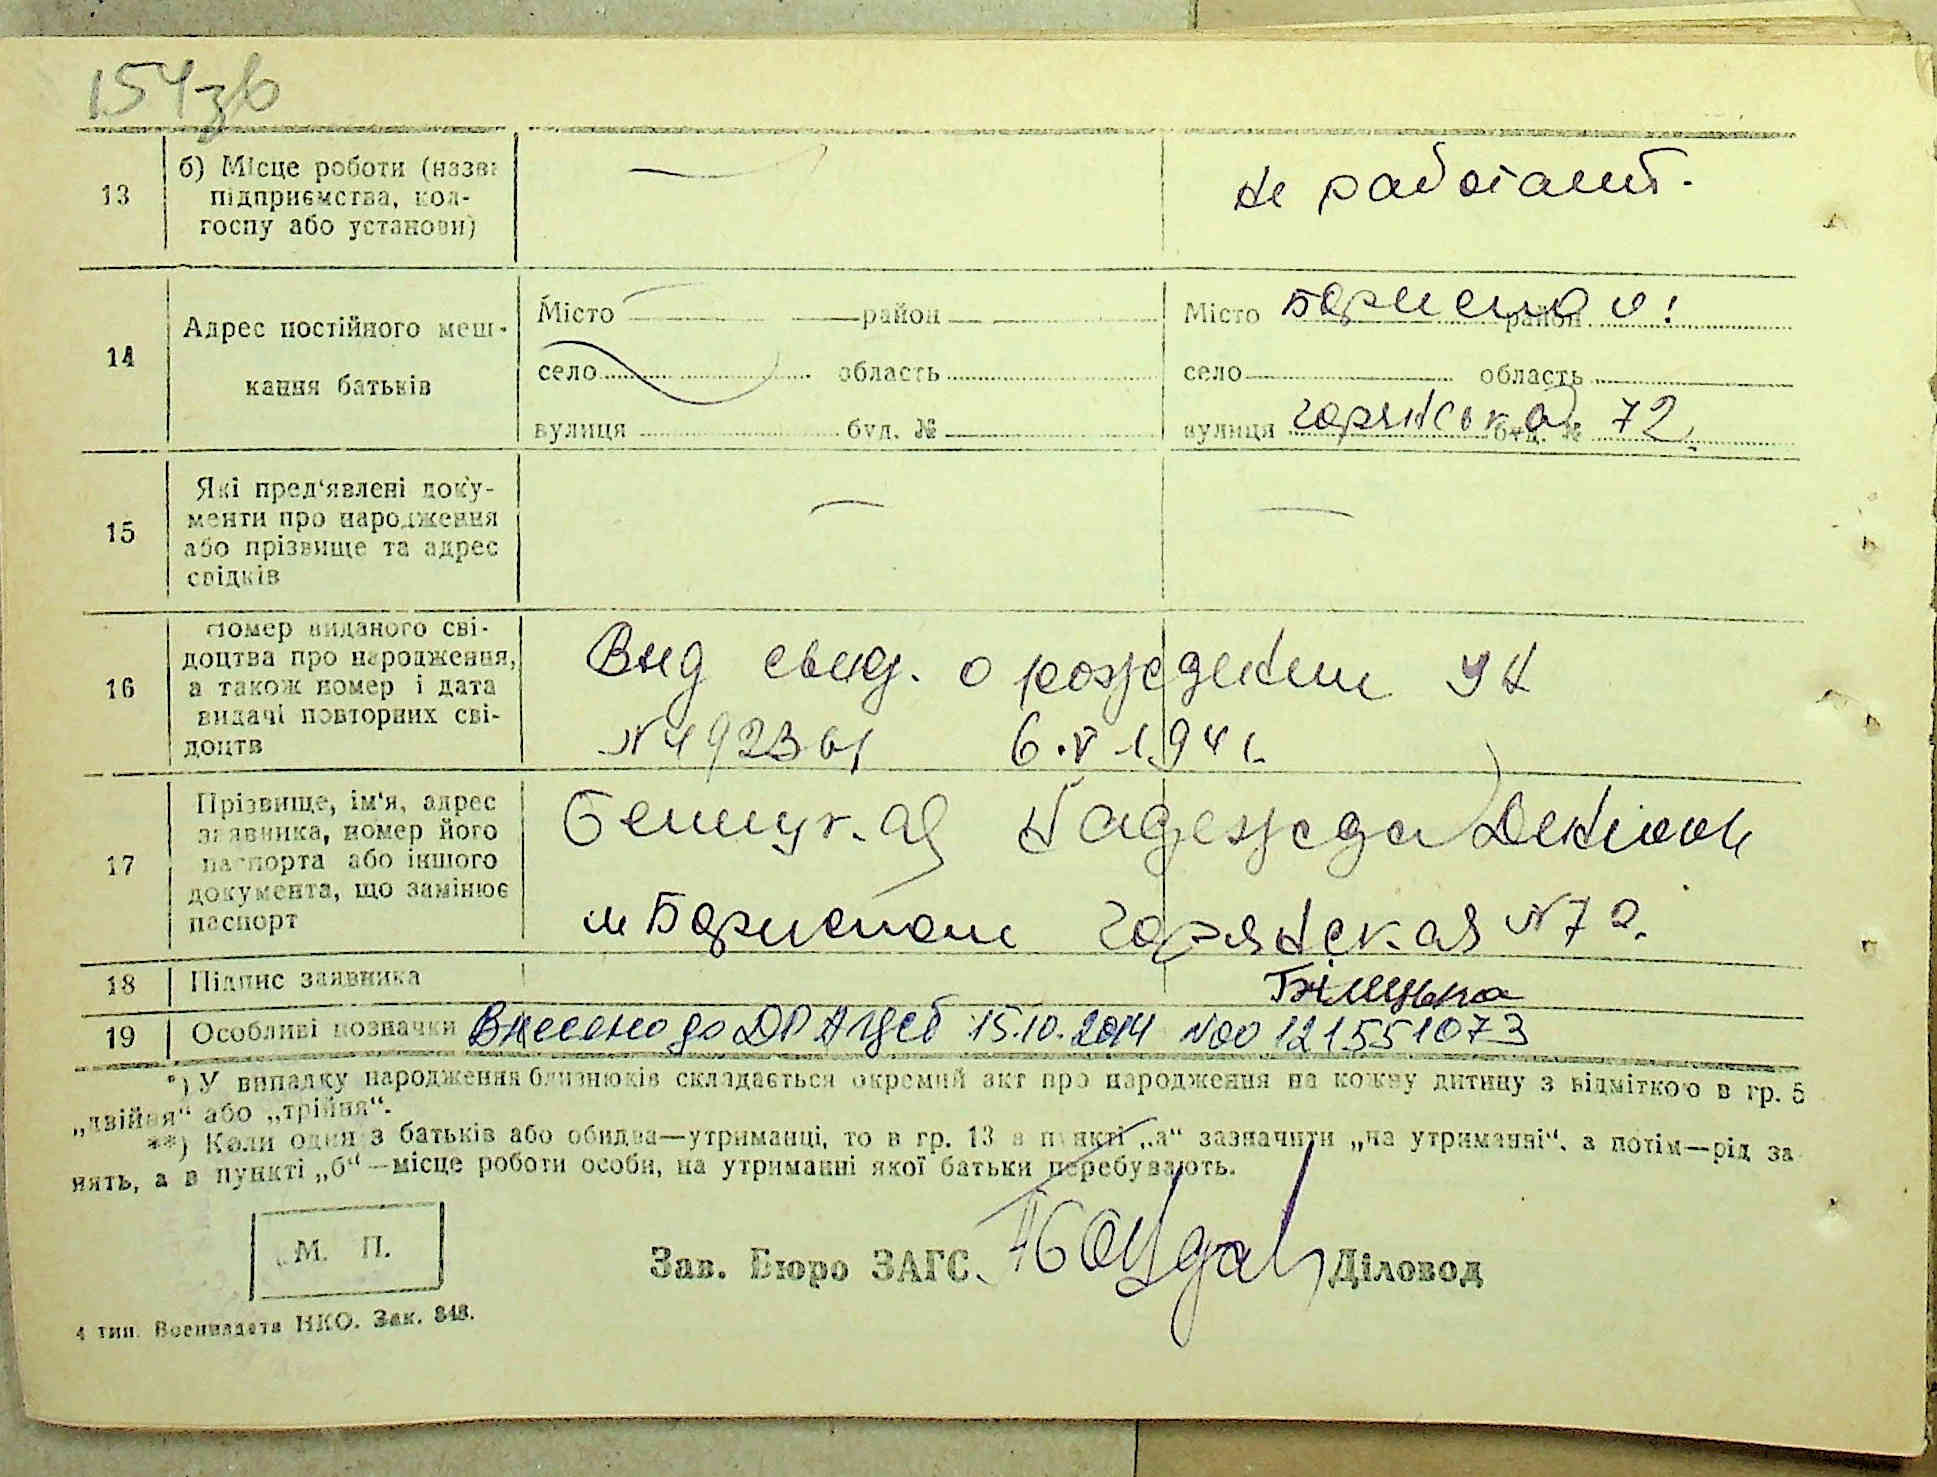 154зв
13
б) Місце роботи (назва
підприємства, кол-
госпу або установи)
—
не работает.
14
Адрес постійного меш-
кання батьків
Місто район
село область
вулиця буд. №
Місто район
село область
вулиця буд. № 72
15
Які пред'явлені доку-
менти про народження
або прізвище та адрес
свідків
—
—
16
Номер виданого сві-
доцтва про народження,
а також номер і дата
видачі повторних сві-
доцтв
Выд свид. о рождении УН
6.V 194
17
Прізвище, ім'я, адрес
заявника, номер його
паспорта або іншого
документа, що замінює
паспорт
Надежда
18
Підпис заявника
Білицька
19
Особливі позначки
Внесено до ДРАЦСГ 15.10.2014 №00121551073
*) У випадку народження близнюків складається окремий акт про народження на кожну дитину з відміткою в гр. 5
„двійня" або „трійня".
**) Коли один з батьків або обидва—утриманці, то в гр. 13 в пункті „а" зазначити „на утриманні", а потім—рід за
нять, а в пункті „б"—місце роботи особи, на утриманні якої батьки перебувають.
М. П.
Зав. Бюро ЗАГС
Діловод
4 тип. Воениздата НКО. Зак. 848.